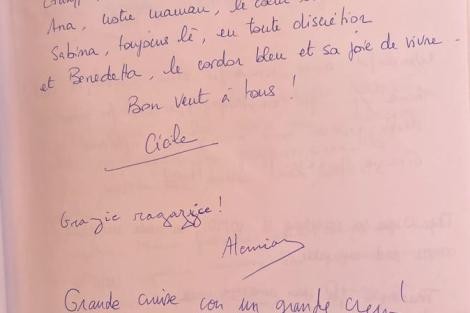 Ana, notre maman, le cœur
Sabina, toujours là, en toute discrétion
et Benedetta, le cordon bleu et sa joie de vivre.
Bon vent à tous !
Cécile
Grazie ragazze!
Grande cruise con un grande crew!